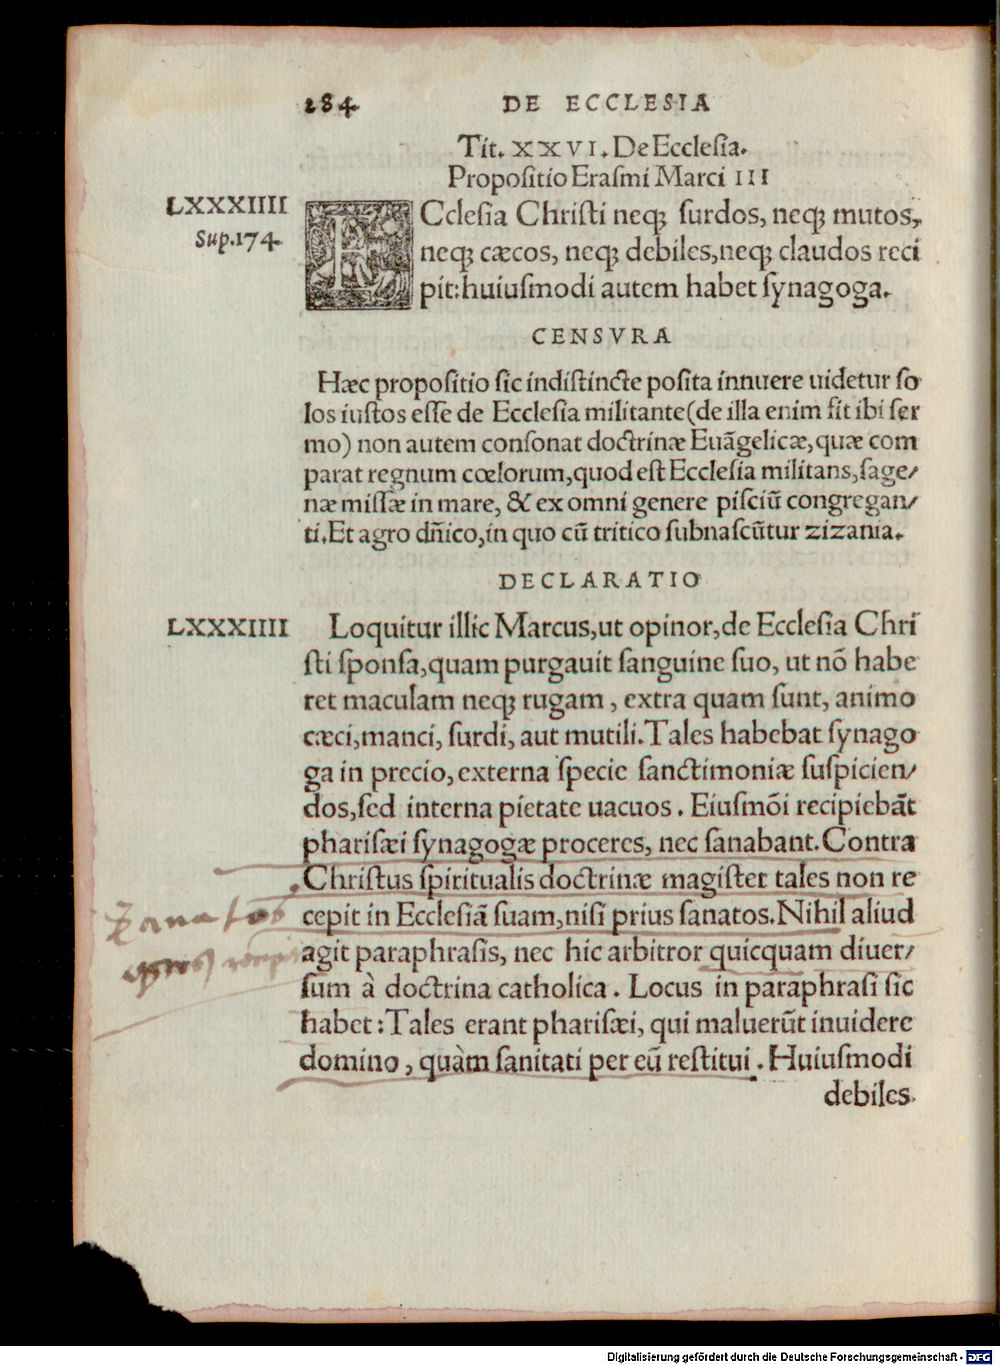 284 DE ECCLESIA
Tit. XXVI. De Ecclesia.
Propositio Erasmi Marci III
LXXXIIII
Sup. 174.
ECclesia Christi neq; surdos, neq; mutos,
neq; cæcos, neq; debiles, neq; claudos reci
pit: huiusmodi autem habet synagoga.
CENSVRA
Hæc propositio sic indistincte posita innuere uidetur so
los iustos esse de Ecclesia militante (de illa enim fit ibi ser
mo) non autem consonat doctrinæ Euãgelicæ, quæ com
parat regnum cœlorum, quod est Ecclesia militans, sage/
næ missæ in mare, & ex omni genere pisciũ congregan/
ti. Et agro dñico, in quo cũ tritico subnascũtur zizania.
DECLARATIO
LXXXIIII
Loquitur illic Marcus, ut opinor, de Ecclesia Chri
sti sponsa, quam purgauit sanguine suo, ut nõ habe
ret maculam neq; rugam, extra quam sunt, animo
cæci, manci, surdi, aut mutili. Tales habebat synago
ga in precio, externa specie sanctimoniæ suspicien/
dos, sed interna pietate uacuos. Eiusmõi recipiebãt
pharisæi synagogæ proceres, nec sanabant. Contra
Christus spiritualis doctrinæ magister tales non re
cepit in Ecclesiã suam, nisi prius sanatos. Nihil aliud
agit paraphrasis, nec hic arbitror quicquam diuer/
sum à doctrina catholica. Locus in paraphrasi sic
habet: Tales erant pharisæi, qui maluerũt inuidere
domino, quàm sanitati per eũ restitui. Huiusmodi
debiles
Digitalisierung gefördert durch die Deutsche Forschungsgemeinschaft - DFG